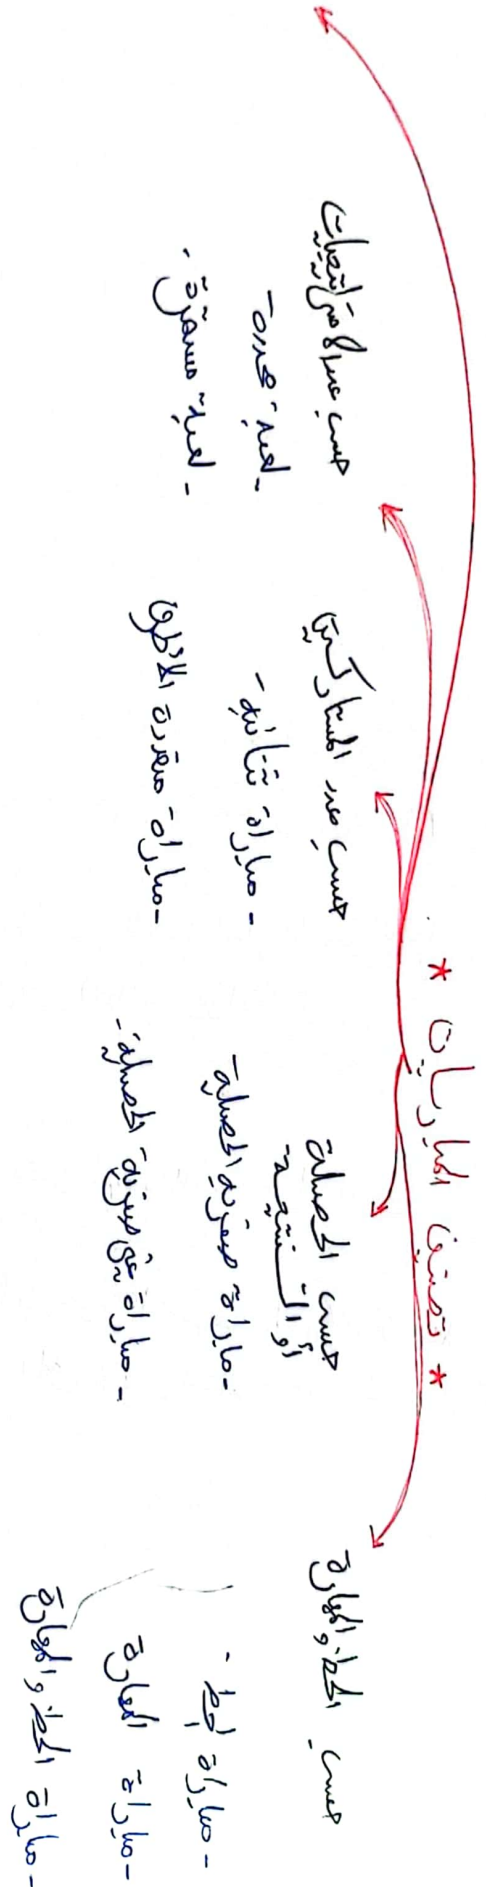 * تصنيف المباريات *
حسب الحظ والمهارة
- مباراة الحظ -
- مباراة المهارة
- مباراة الحظ والمهارة
حسب الحصلة
أو النتيجة
- مباراة صفرية الحصلة
- مباراة غير صفرية الحصلة
حسب عدد المشاركين
- مباراة ثنائية -
- مباراة متعددة الأطراف
حسب عدد الاستراتيجيات
- لعبة محددة -
- لعبة مستقرة -